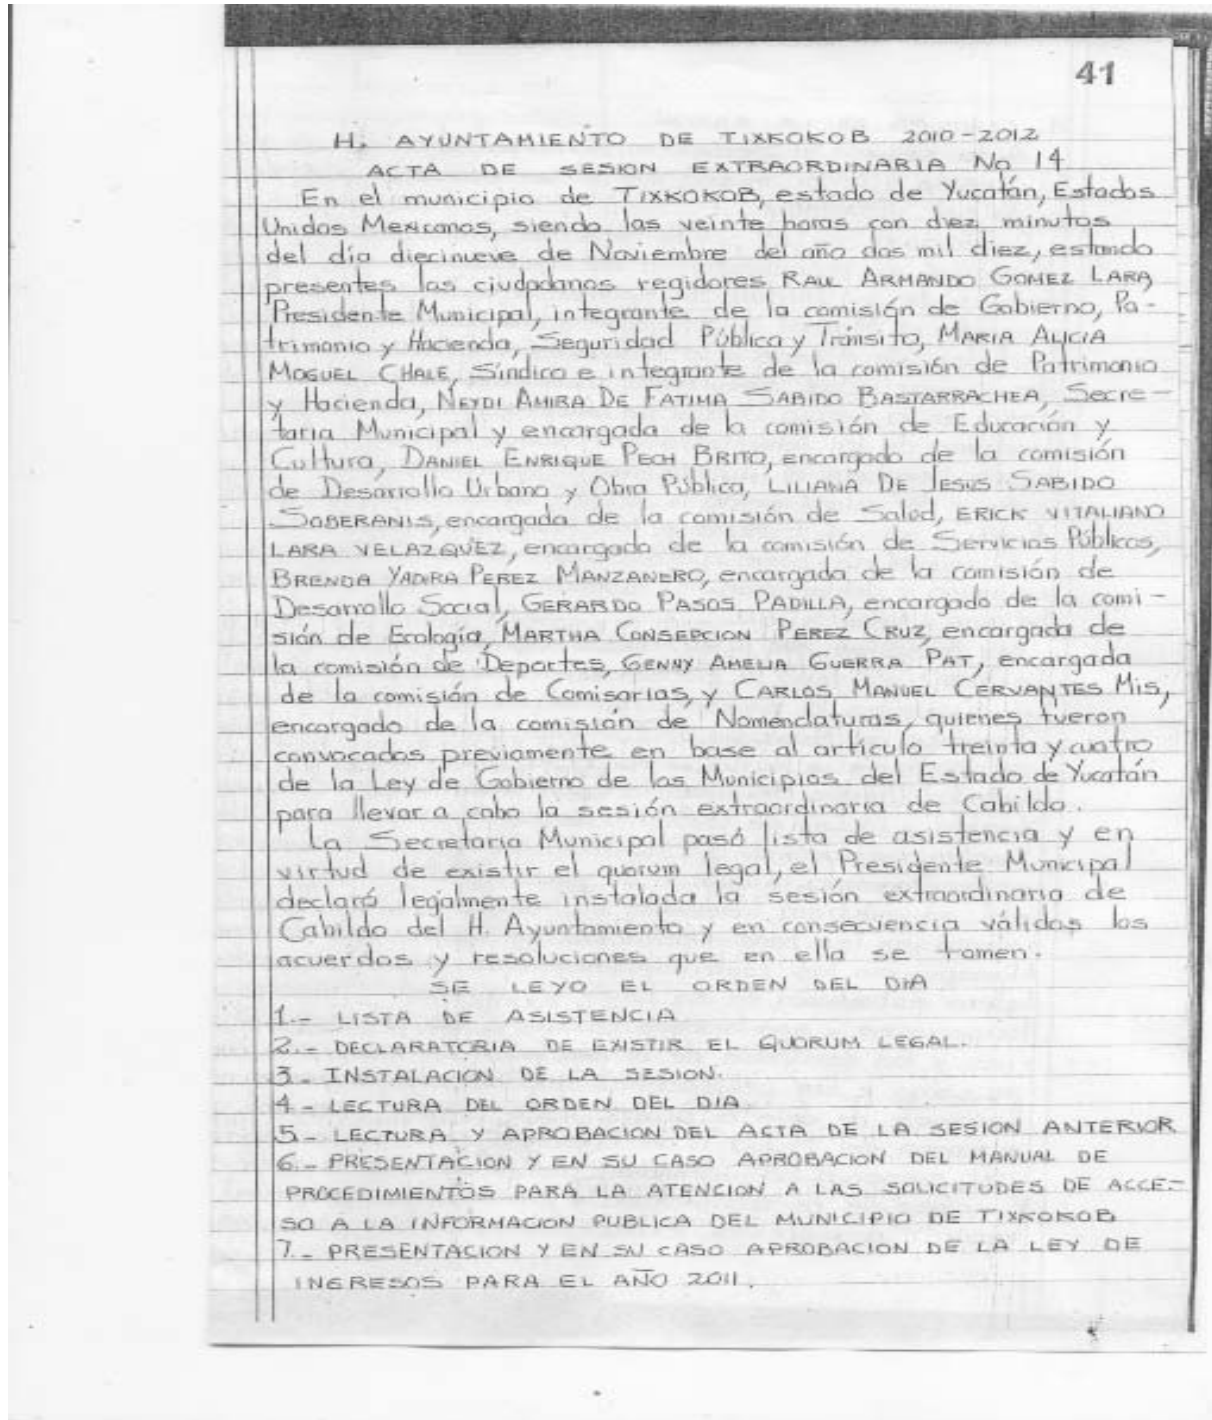 41
H. AYUNTAMIENTO DE TIXKOKOB 2010-2012
ACTA DE SESION EXTRAORDINARIA No 14
En el municipio de TIXKOKOB, estado de Yucatán, Estados
Unidos Mexicanos, siendo las veinte horas con diez minutos
del día diecinueve de Noviembre del año dos mil diez, estando
presentes los ciudadanos regidores RAUL ARMANDO GOMEZ LARA,
Presidente Municipal, integrante de la comisión de Gobierno, Pa-
trimonio y Hacienda, Seguridad Pública y Tránsito, MARIA ALICIA
MOGUEL CHALE, Síndico e integrante de la comisión de Patrimonio
y Hacienda, NEYDI AMIRA DE FATIMA SABIDO BASTARRACHEA, Secre-
taria Municipal y encargada de la comisión de Educación y
Cultura, DANIEL ENRIQUE PECH BRITO, encargado de la comisión
de Desarrollo Urbano y Obra Pública, LILIANA DE JESUS SABIDO
SOBERANIS, encargada de la comisión de Salud, ERICK VITALIANO
LARA VELAZQUEZ, encargado de la comisión de Servicios Públicos,
BRENDA YADIRA PEREZ MANZANERO, encargada de la comisión de
Desarrollo Social, GERARDO PASOS PADILLA, encargado de la comi-
sión de Ecología, MARTHA CONSEPCION PEREZ CRUZ, encargada de
la comisión de Deportes, GENNY AMELIA GUERRA PAT, encargada
de la comisión de Comisarias, y CARLOS MANUEL CERVANTES MIS,
encargado de la comisión de Nomenclaturas, quienes fueron
convocados previamente en base al artículo treinta y cuatro
de la Ley de Gobierno de los Municipios del Estado de Yucatán
para llevar a cabo la sesión extraordinaria de Cabildo.
La Secretaria Municipal pasó lista de asistencia y en
virtud de existir el quorum legal, el Presidente Municipal
declaró legalmente instalada la sesión extraordinaria de
Cabildo del H. Ayuntamiento y en consecuencia válidos los
acuerdos y resoluciones que en ella se tomen.
SE LEYO EL ORDEN DEL DIA
1.- LISTA DE ASISTENCIA
2.- DECLARATORIA DE EXISTIR EL QUORUM LEGAL.
3.- INSTALACION DE LA SESION.
4.- LECTURA DEL ORDEN DEL DIA
5.- LECTURA Y APROBACION DEL ACTA DE LA SESION ANTERIOR
6.- PRESENTACION Y EN SU CASO APROBACION DEL MANUAL DE
PROCEDIMIENTOS PARA LA ATENCION A LAS SOLICITUDES DE ACCE-
SO A LA INFORMACION PUBLICA DEL MUNICIPIO DE TIXKOKOB
7.- PRESENTACION Y EN SU CASO APROBACION DE LA LEY DE
INGRESOS PARA EL AÑO 2011.